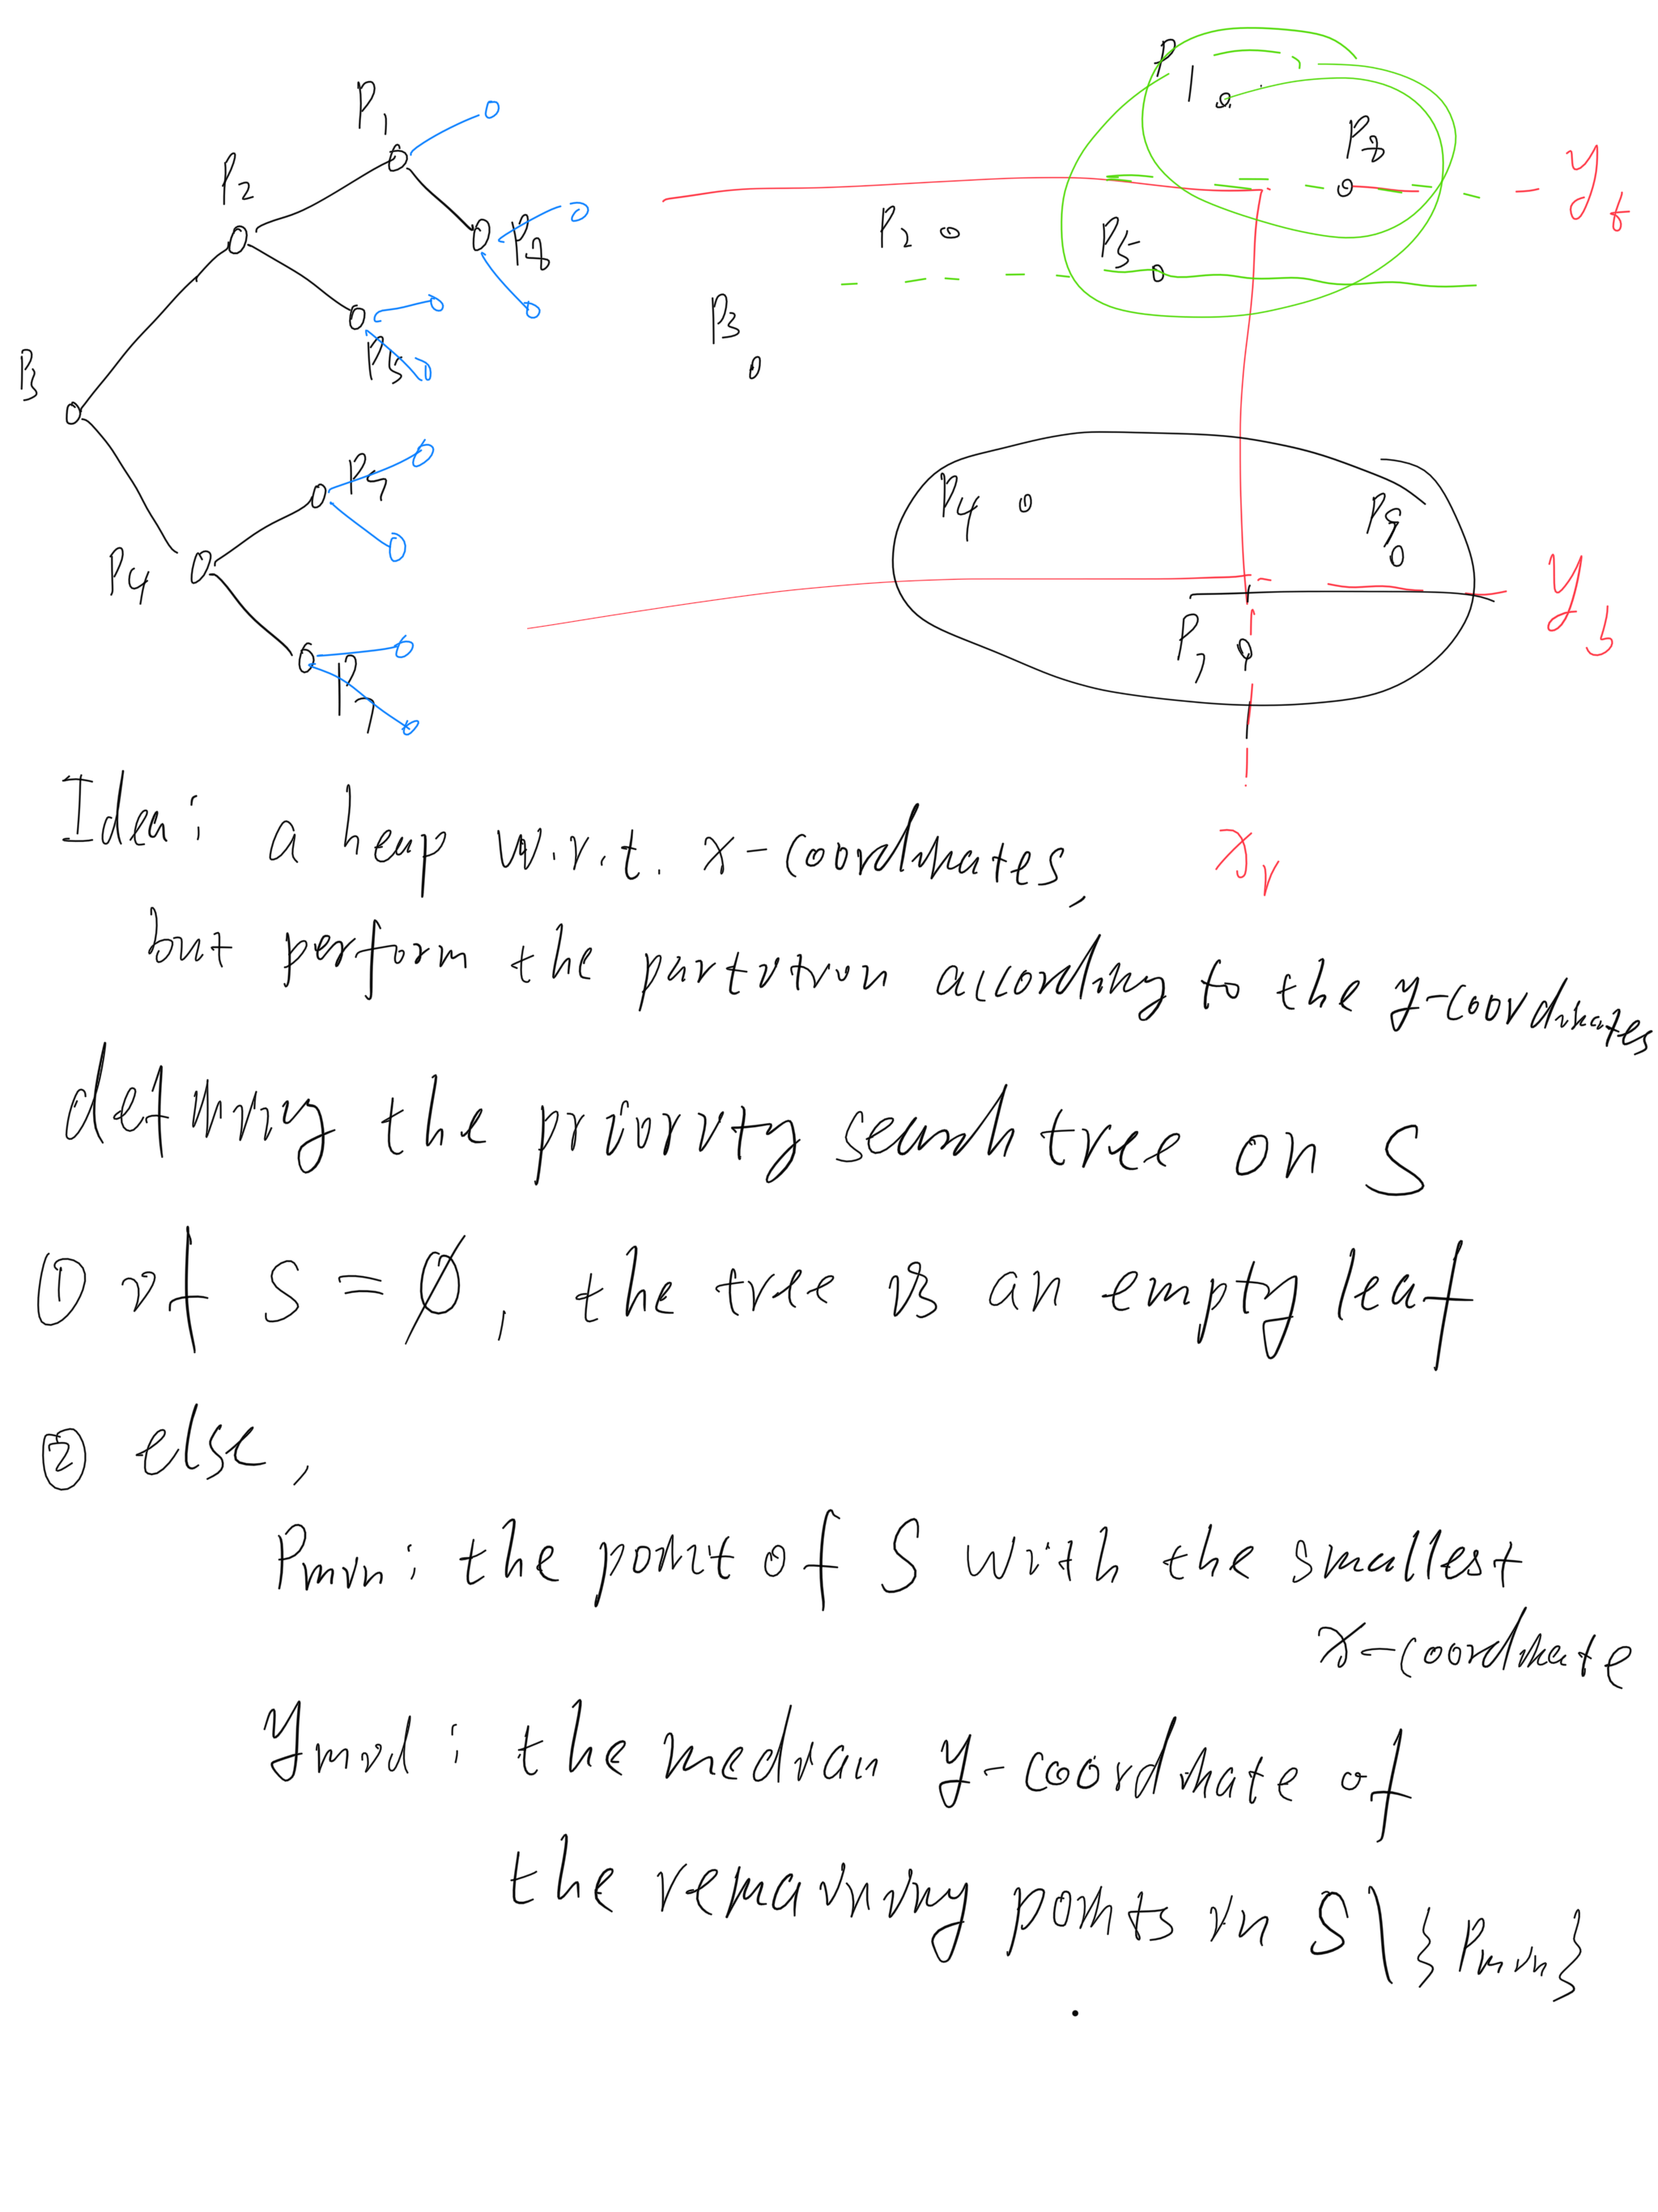 P1
P2
P8
P5
P3
P9
P4
P7
P1
P8
yt
P2
P5
P3
P4
P9
yb
P7
xr
Idea: a heap w.r.t. x-coordinates,
but perform the partition according to the y-coordinates
defining the priority search tree on S
① if S = ∅, the tree is an empty leaf
② else,
Pmin: the point of S with the smallest
x-coordinate
ymid: the median y-coordinate of
the remaining points in S\{Pmin}